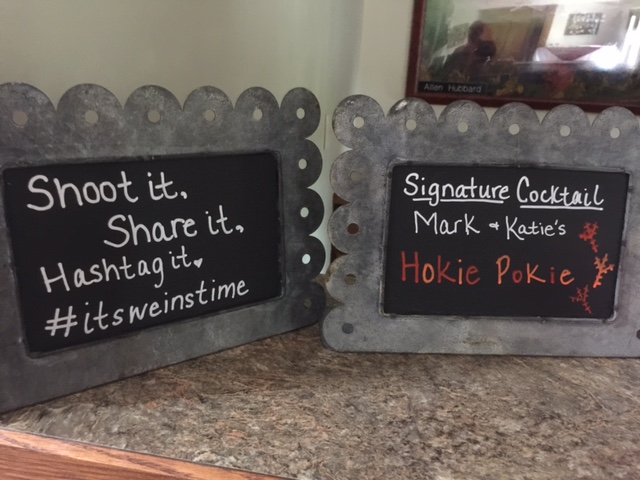 Allen Hubbard
Shoot it,
Share it,
Hashtag it
#itsweinstime
Signature Cocktail
Mark + Katie's
Hokie Pokie